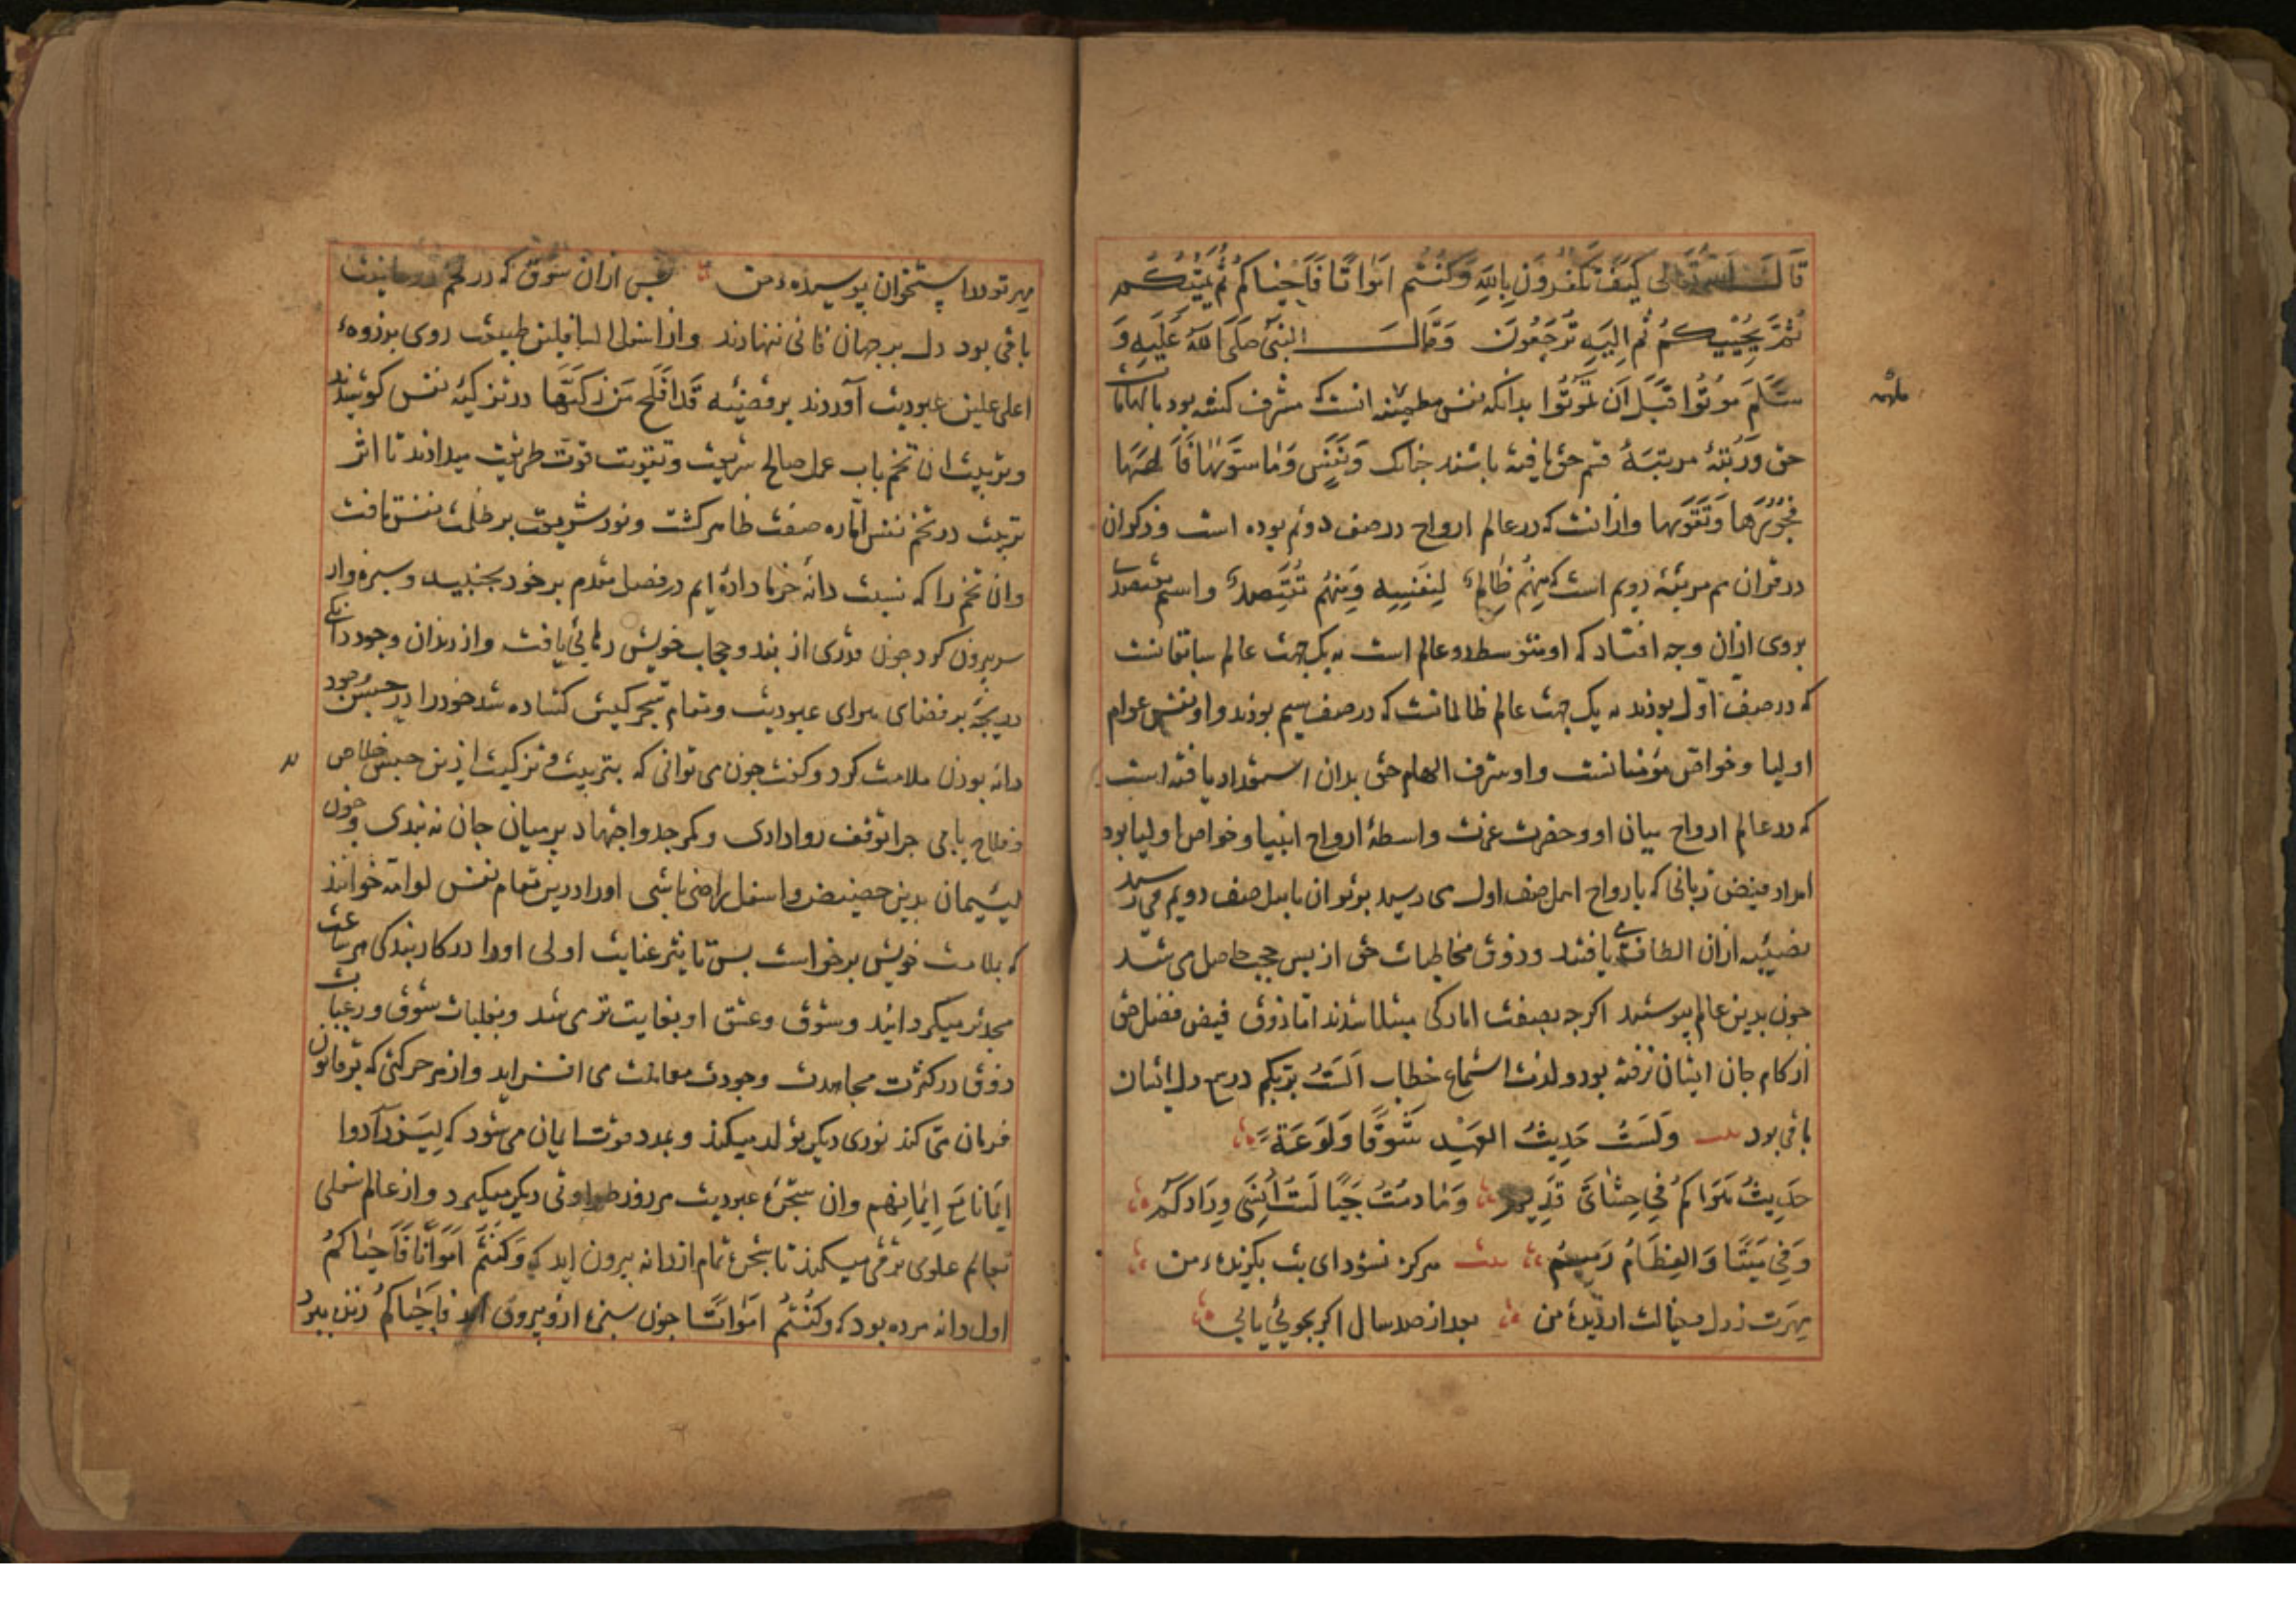 قَالَ اللّٰه تعالی كَيْفَ تَكْفُرُونَ بِاللّٰهِ وَكُنْتُم اَمْوَاتًا فَاَحْيَاكُمْ ثُمَّ يُمِيتُكُم
ثُمَّ يُحْيِيكُمْ ثُمَّ اِلَيْهِ تُرْجَعُونَ وَقَالَ النَّبِيُّ صَلَّى اللّٰهُ عَلَيْهِ وَ
سَلَّمَ مُوتُوا قَبْلَ اَن تَمُوتُوا بدانکه نفس مطمینه انست که مشرف کشته بود بالهامات
حق وَرُتْبَهٔ مرتبهٔ قسم حق یافته باشند جنانک وَنَفْسٍ وَمَا سَوَّيٰهَا فَاَلْهَمَهَا
فُجُورَهَا وَتَقْوٰيهَا واز انست که در عالم ارواح در صف دوئم بوده است وذکر ان
در قران هم مرتبهٔ دویم است که مِنْهُمْ ظَالِمٌ لِنَفْسِهِ وَمِنْهُمْ مُقْتَصِدٌ واسم مقتصدی
بروی ازان وجه افتاد که او متوسط دو عالم است به یک جهت عالم سابقانست
که در صف اوّل بودند به یک جهت عالم ظالمانست که در صف سیم بودند واو نفس عوام
اولیا وخواصّ مؤمنانست واو شرف الهام حق بدان استعداد یافته است
که در عالم ارواح میان او وحضرت عزت واسطهٔ ارواح انبیا وخواص اولیا بود
امداد فیض ربانی که بارواح اهل صف اول می رسید برتو ان باهل صف دویم می رسید
نصیبه ازان الطاف می یافتند وذوق مخاطبات حق از پس حجب حاصل می شد
جون بدین عالم پیوستند اکرجه بصفت امارکی مبتلا شدند امّا ذوق فیض فضل حق
از کام جان ایشان نرفته بود ولذت استماع خطاب اَلَسْتُ بِرَبِّكُم در سمع دل ایشان
باقی بود بیت وَلَسْتُ حَدِيثُ الْعَهْدِ شَوْقًا وَلَوْعَةً
حَدِيثُ هَوَاكُمْ فِي حِشَائِي قَدِيمٌ وَمَا دمْتُ حَيًّا لَسْتُ اَنْسٰى وِدَادَكُمْ
وَفِي مَيِّتًا وَالْعِظَامُ رَمِيمٌ بیت هرکز نشود ای بت بکزیدهٔ من
مِهرَت ز دل و خیالت از دیدهٔ من بعد از صد سال اکر بجوئی یابی
مهر تو در استخوان پوسیدهٔ من پس ازان شوق که در تخم
باقی بود دل بر جهان فانی ننهادند واز اسفل السافلین طبیعت روی بذروهٔ
اعلی علیین عبودیت آوردند بر قضیهٔ قَدْ اَفْلَحَ مَنْ زَكّٰيهَا در تزکیهٔ نفس کوشیدند
وتربیت ان تخم باب عمل صالح شریعت وتقویت قوت طریقت میدادند تا اثر
تربیت در تخم نفس امّاره صفت ظاهر کشت ونور شریعت بر ظلمت نفس تافت
وان تخم را که نسبت دانهٔ خرما داده ایم در فصل مقدم بر خود بجنبید وسبزه وار
سر بیرون کرد جون قدری از بند وحجاب خویش رهائی یافت واز زندان وجود دانکی
دریجهٔ بر فضای سرای عبودیت ومقام کشاده شد خود را در حبس وجود
دانه بودن ملامت کرد وکفت جون می توانی که بتربیت وتزکیت ازین حبس خلاص
وفلاح یابی جرا توقف روا داری وکمر جد واجتهاد بر میان جان نه بندی وجون
لیئیمان بدین حضیض واسفل راضی باشی اورا درین مقام نفس لوامه خوانند
که بملامت خویش برخواست پس تاثیر عنایت اولی اورا در کار بندکی هر ساعت
مجدتر میکرداند وشوق وعشق او بغایت تری شد وبغلبات شوق ورغبات
ذوق در کثرت مجاهدت وجودت معاملت می افزاید واز هر حرکتی که بر قانون
فرمان می کند نوری دیکر تولد میکند ومدد قوت ایمان می شود که لِيَزْدَادُوا
اِيمَانًا مَعَ اِيمَانِهِم وان شجرهٔ عبودیت هر روز طراوتی دیکر میکیرد واز عالم سفلی
بعالم علوی ترقی میکند تا شجره تمام از دانه بیرون اید که وَكُنْتُمْ اَمْوَاتًا فَاَحْيَاكُمْ
اول دانه مرده بود که وَكُنْتُمْ اَمْوَاتًا جون سبزه ازو بیرون آمد فَاَحْيَاكُمْ